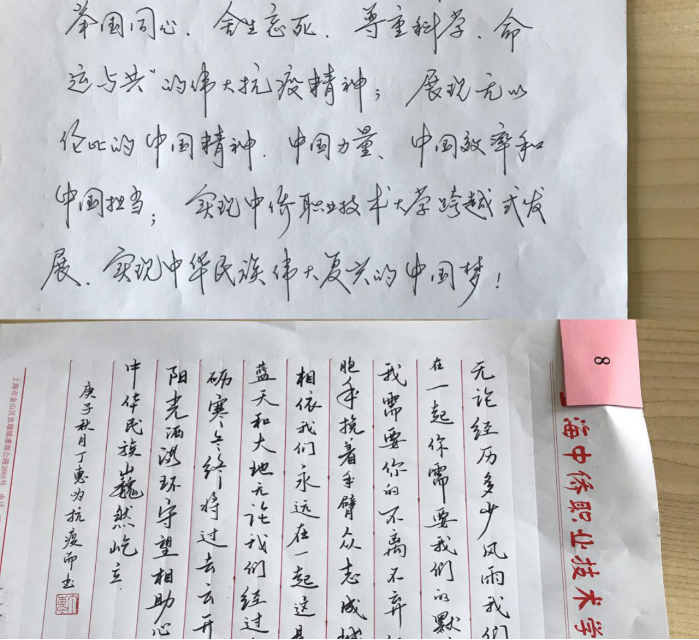 举国同心、舍生忘死、尊重科学、命
运与共"的伟大抗疫精神；展现无以
伦比的中国精神、中国力量、中国效率和
中国担当；实现中侨职业技术大学跨越式发
展、实现中华民族伟大复兴的中国梦！
8
海中侨职业技术学
无论经历多少风雨我们
在一起你需要我们的默
我需要你的不离不弃
胞手挽着手臂众志成城
相依我们永远在一起这是
蓝天和大地无论我们经过
砺寒冬终将过去云开
阳光洒满环守望相助心
中华民族巍然屹立
庚子秋月丁惠为抗疫而书
上海市金山区漕廊公路3888号